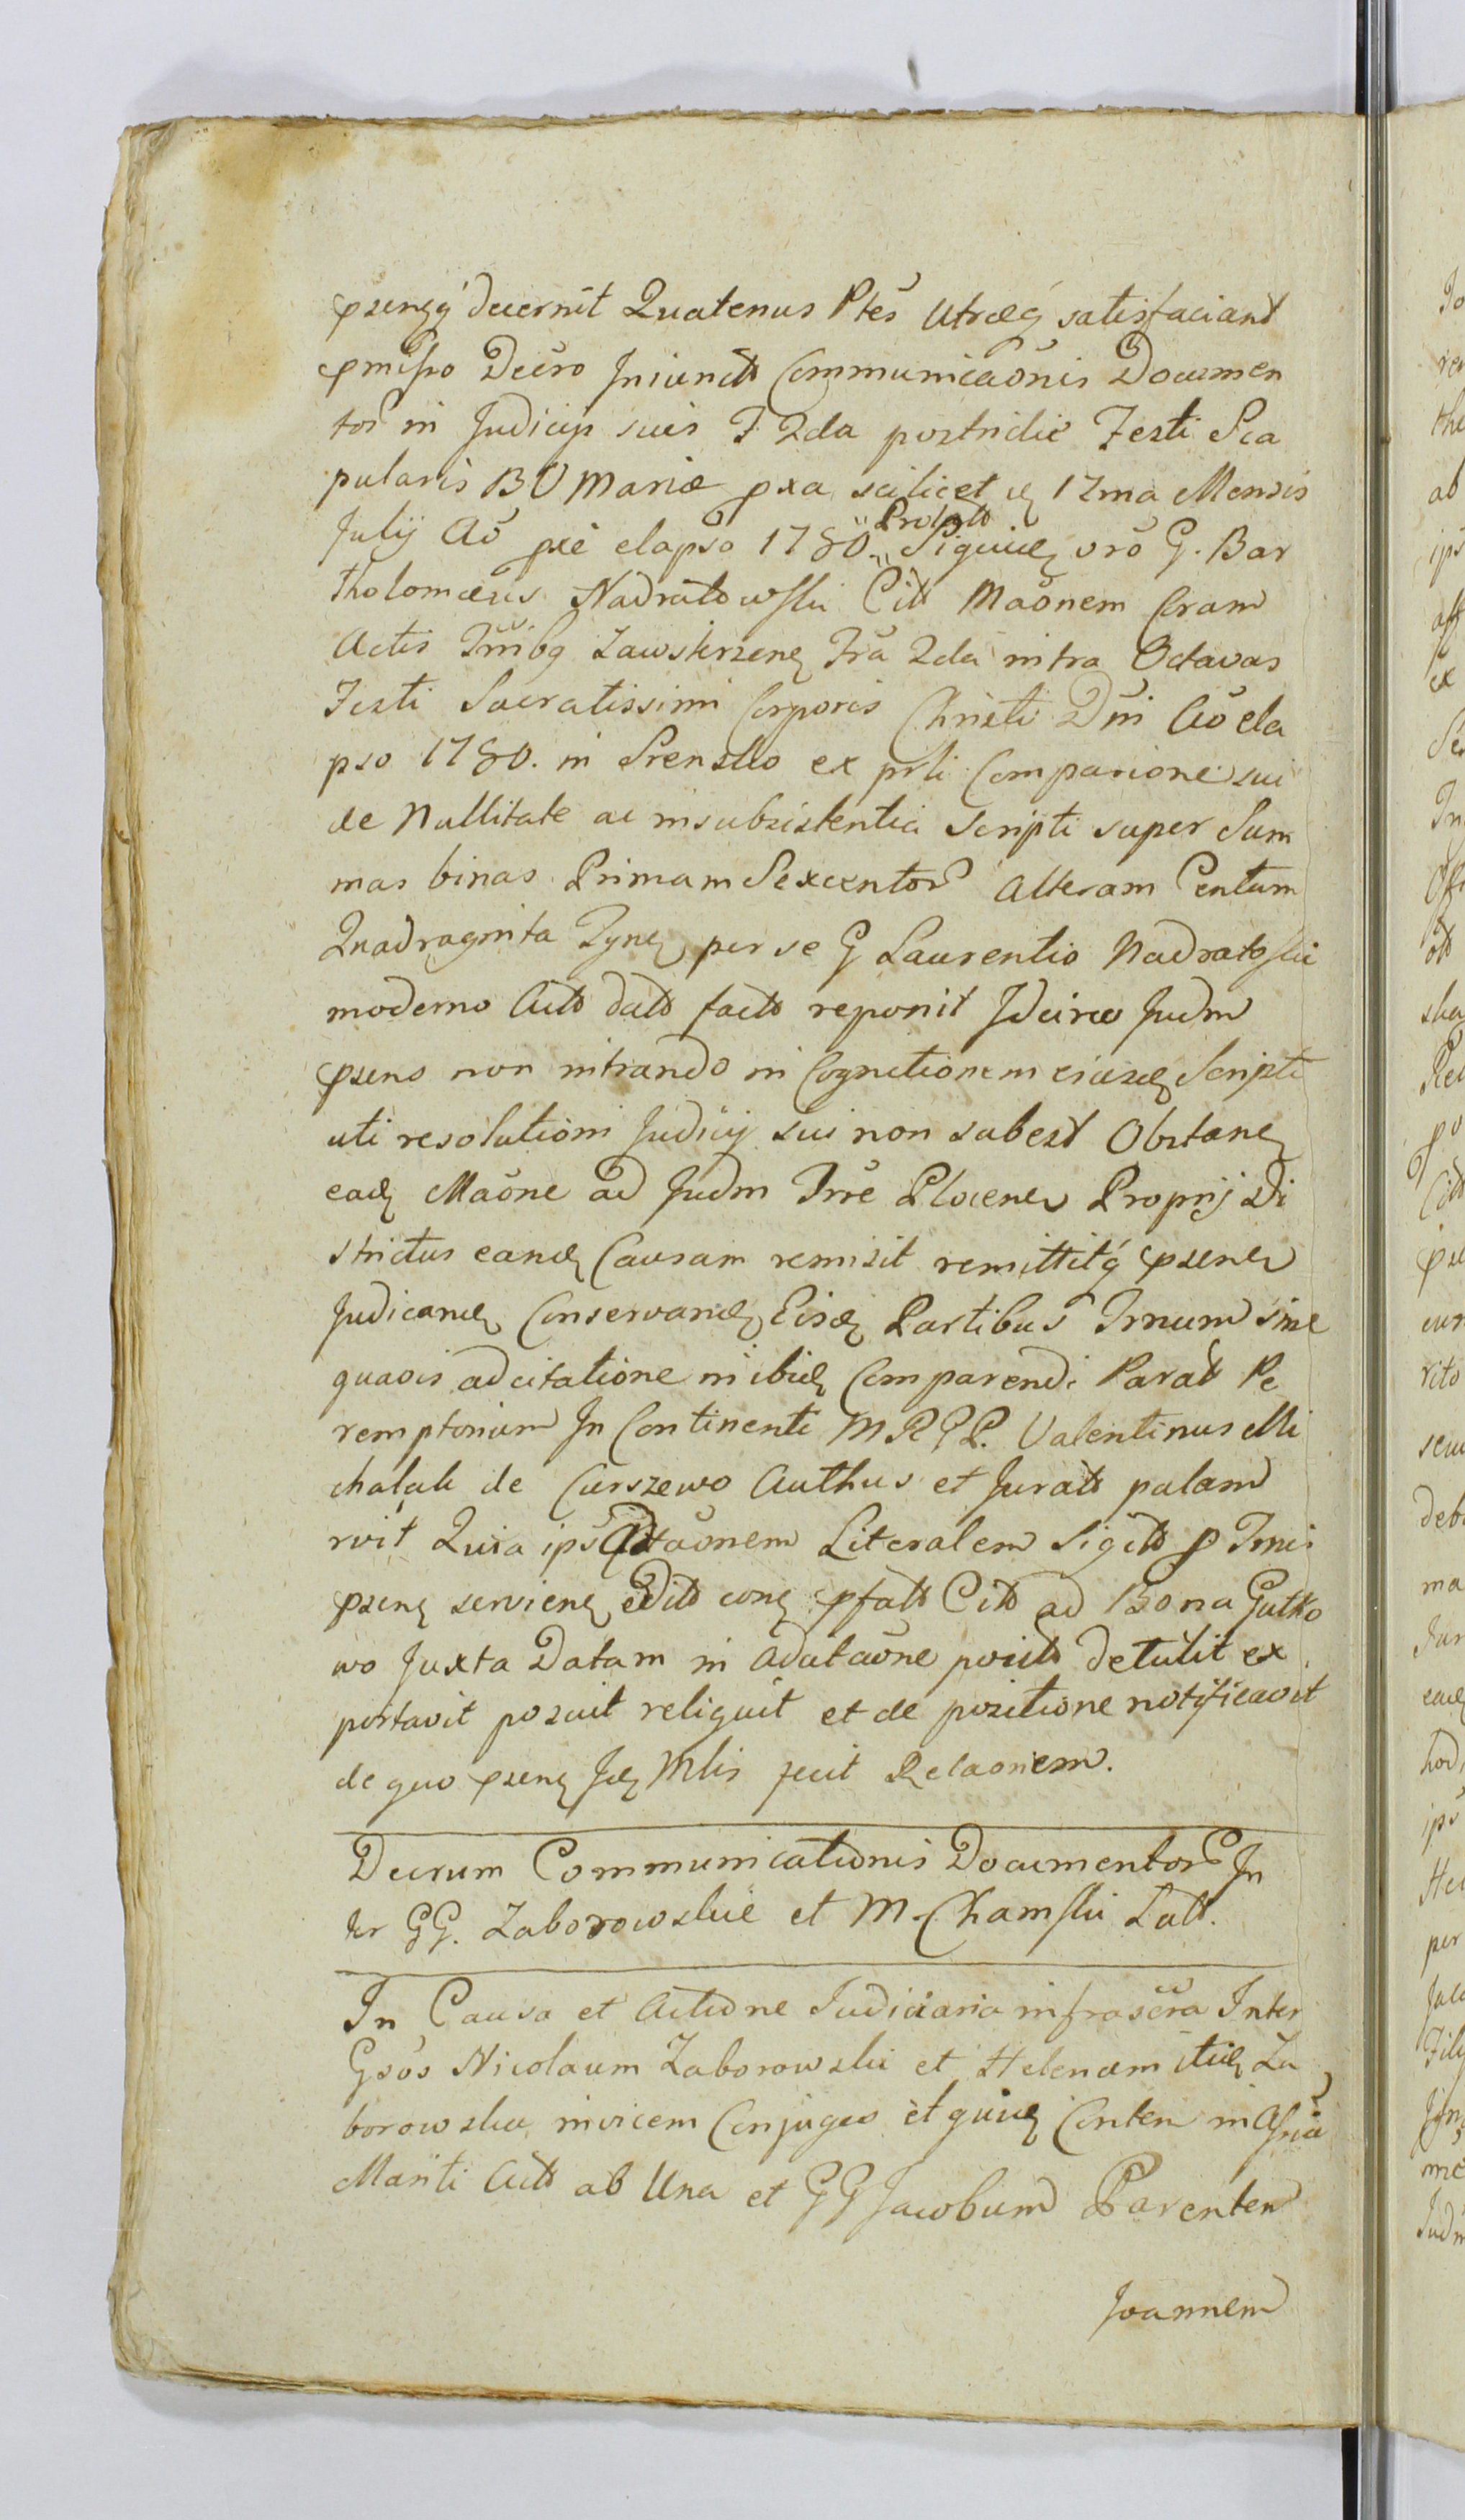 pseneq decernit Quatenus Ptes Utræq satisfaciant
pmisso Decro Iniunct Communicaonis Documen
tor in Judicijs suis F 2da postridie Festi Sca
pularis BV Mariæ pxa scilicet 17ma Mensis
Julij Ao pxe elapso 1780. Prolatt Siquid vro G. Bar
tholomæus Nadratowski Citt Maonem Coram
Actis Trribq Zawskrzen Fra 2da intra Octavas
Festi Sacratissimi Corporis Christi Dni Ao ela
pso 1780. in Srensko ex prli Comparione sui
de Nullitate ac insubsistentia Scripti super Sum
mas binas Primam Sexcentor Alteram Centum
Quadraginta Tyn per se G Laurentio Nadratoski
moderno Actt datt factt reponit Idcirco Judm
psens non intrando in Cognitionem eiusd Scripti
uti resolutioni Judicij sui non subest Obstan
ead Maone ad Judm Trre Plocen Proprij Di
strictus eand Causam remisit remittitq psen
Judicand Conservand Eisd Partibus Trnum sine
quavis adcitatione inibid Comparendi Parat Pe
remptorium In Continenti MRGP. Valentinus Mi
chalak de Curszewo Authus et Juratt palam
rvit Quia ips Adtaonem Literalem Sigitt p Trnis
psen servien editt con pfatt Citt ad Bona Gutko
wo Juxta Datam in Adataone positt detulit ex
portavit posuit reliquit et de positione notificavit
de quo psen Jd Mlis fecit Relaonem.
Decrum Communicationis Documentor In
ter GG. Zaborowskie et M. Chamski Latt.
In Causa et Actione Judiciaria infrascra Inter
Gsos Nicolaum Zaborowski et Helenam itid Za
borowska invicem Conjuges et quid Conten in Assia
Mariti Actt ab Una et GG Jacobum Parentem
Joannem